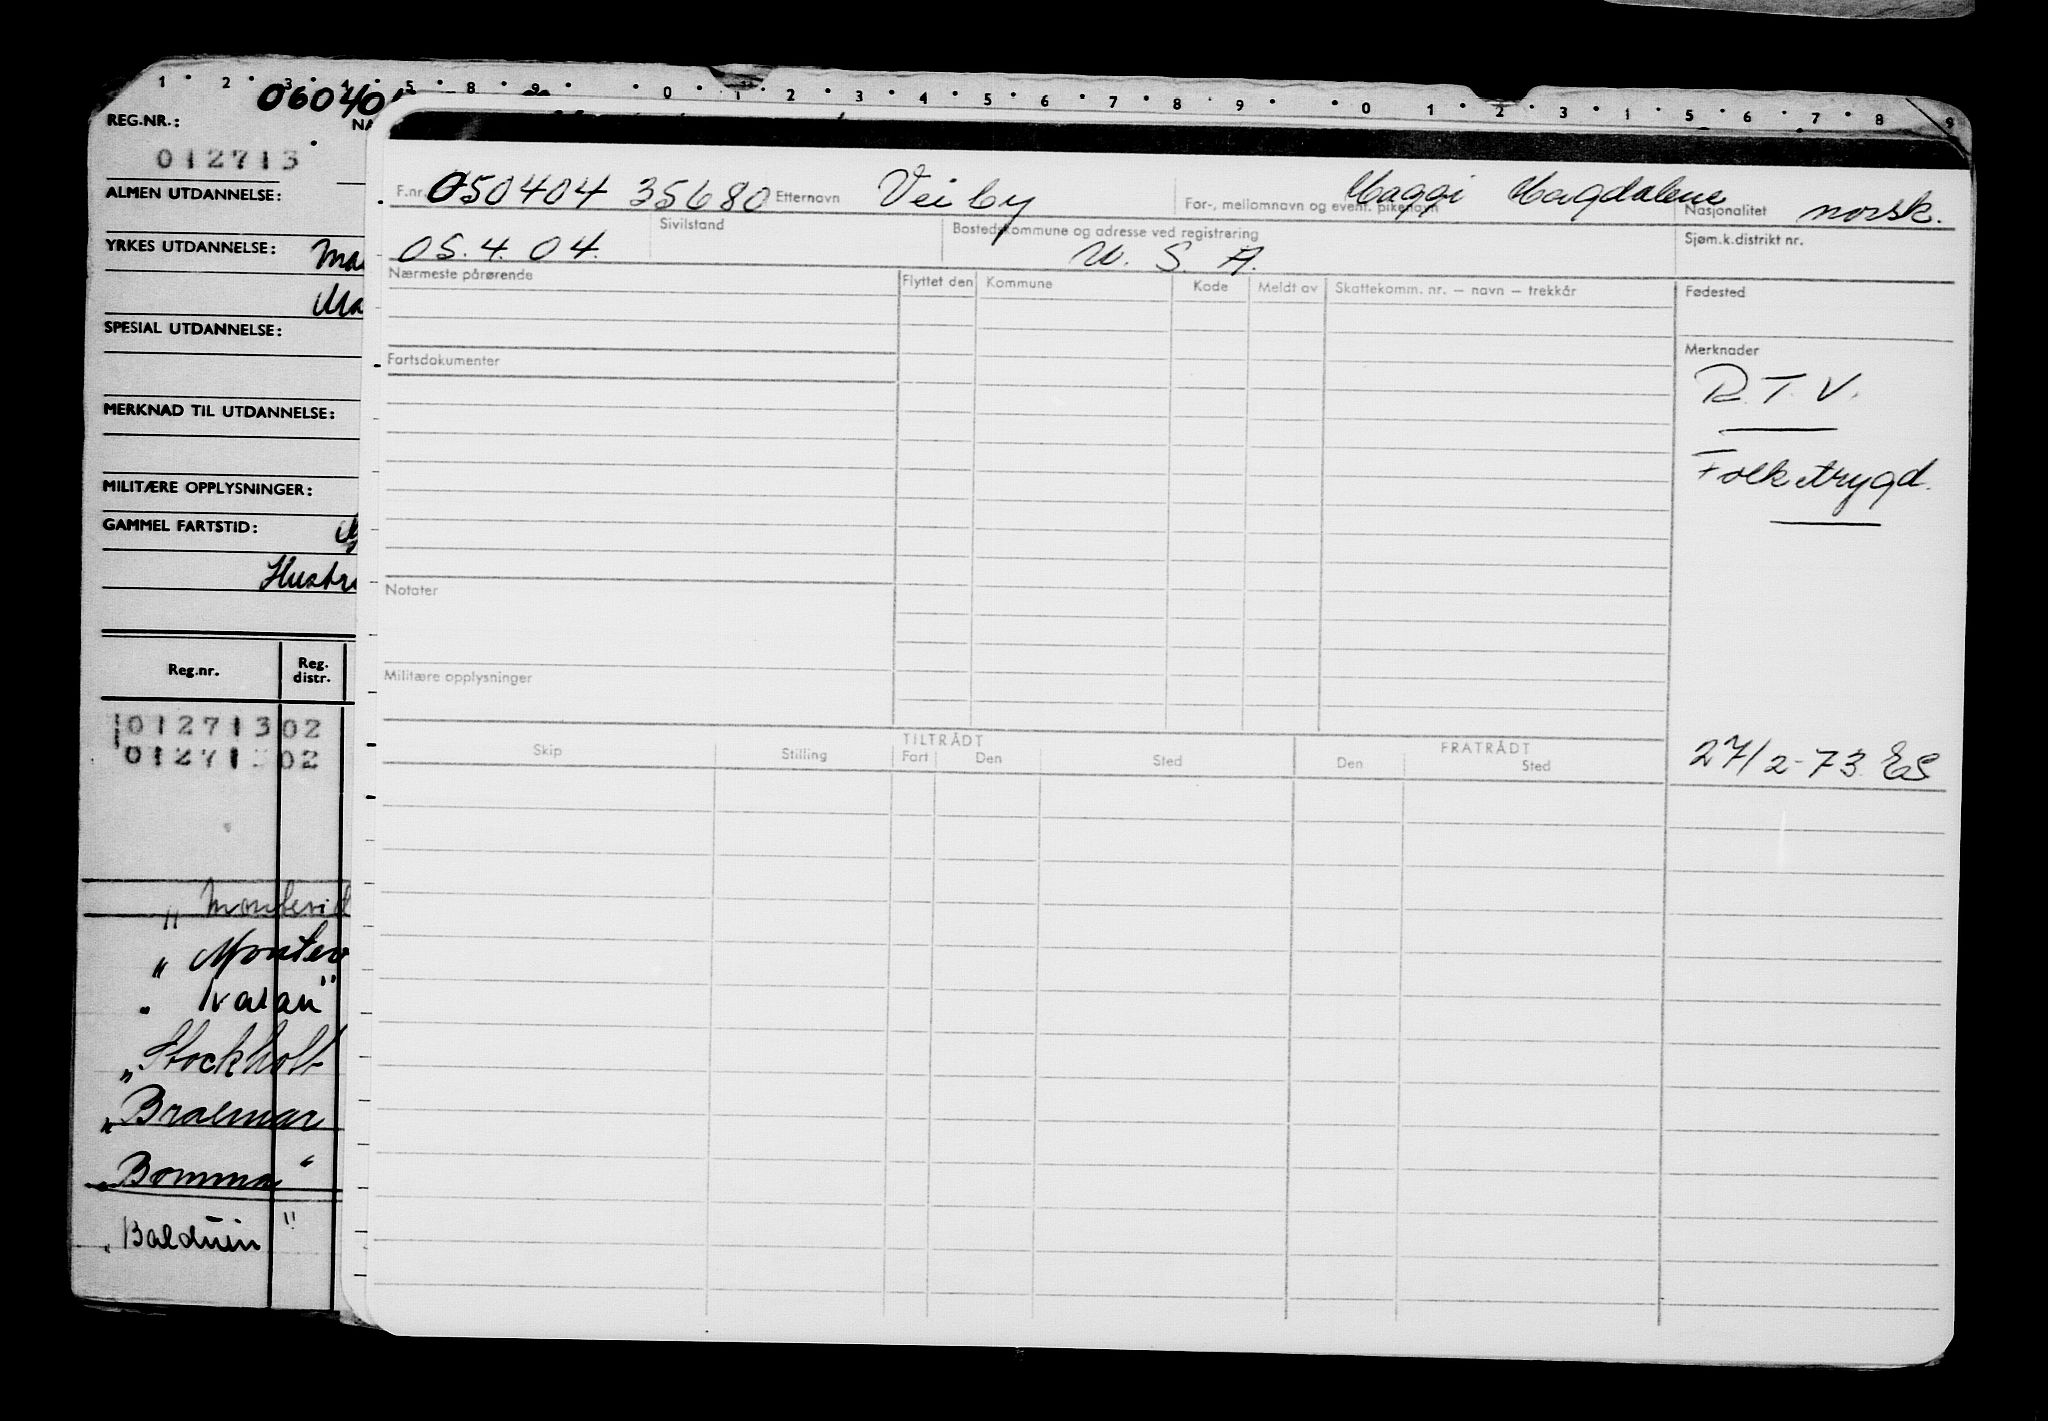 1 2 3 4 5 8 9 0 1 2 3 4 5 6 7 8 9 0 1 2 3 1 5 6 7 8 9
06040
REG.NR.:
NA
012713
ALMEN UTDANNELSE:
YRKES UTDANNELSE:
SPESIAL UTDANNELSE:
MERKNAD TIL UTDANNELSE:
MILITÆRE OPPLYSNINGER:
GAMMEL FARTSTID:
Hustr
Reg.nr. Reg. distr.
01271302
01271302
" Montevid
" Montev
" Ivaran"
" Stockholt
" Braemar
" Bomma "
" Balduin "
F.nr. 050404 35680 Etternavn Veiby For-, mellomnavn og event. pikenavn Maggi Magdalene Nasjonalitet norsk.
05.4.04. Sivilstand Bostedskommune og adresse ved registrering U. S. A. Sjøm.k.distrikt nr.
Nærmeste pårørende Flyttet den Kommune Kode Meldt av Skattekomm. nr. – navn – trekkår Fødested
Fartsdokumenter Merknader
R.T.V.
Folketrygd.
Notater
Militære opplysninger
TILTRÅDT FRATRÅDT
Skip Stilling Fart Den Sted Den Sted
27/2-73 ES